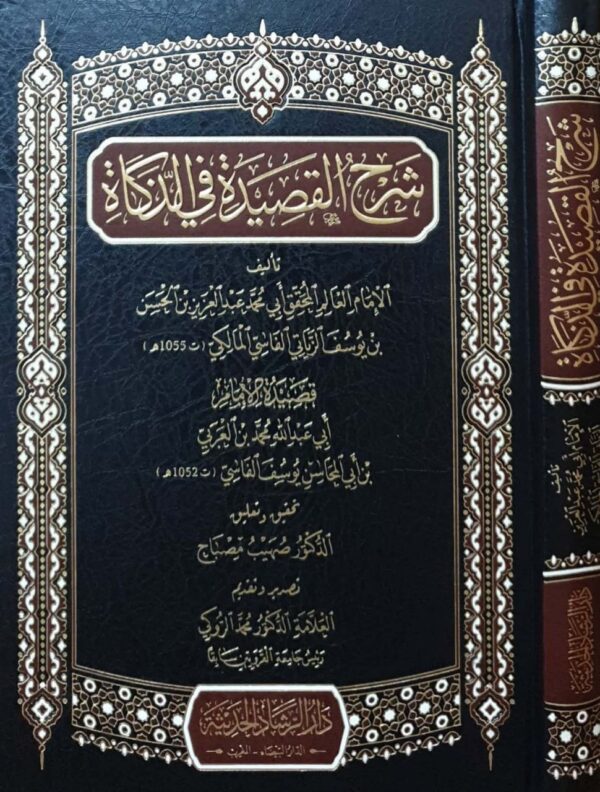 شرح القصيدة في الذكاة
تأليف
الإمام العالم المحقق أبي محمد عبد العزيز بن الحسن
بن يوسف الزياتي الفاسي المالكي (ت 1055هـ)
قصيدة الإمام
أبي عبد الله محمد بن العربي
بن أبي المحاسن يوسف الفاسي (ت 1052هـ)
تحقيق وتعليق
الدكتور صهيب مصباح
تصدير وتقديم
العلامة الدكتور محمد الروكي
رئيس جامعة القرويين سابقا
دار الرشاد الحديثة
الدار البيضاء - المغرب
شرح القصيدة في الذكاة
تأليف
الإمام أبي محمد عبد العزيز
دار الرشاد الحديثة